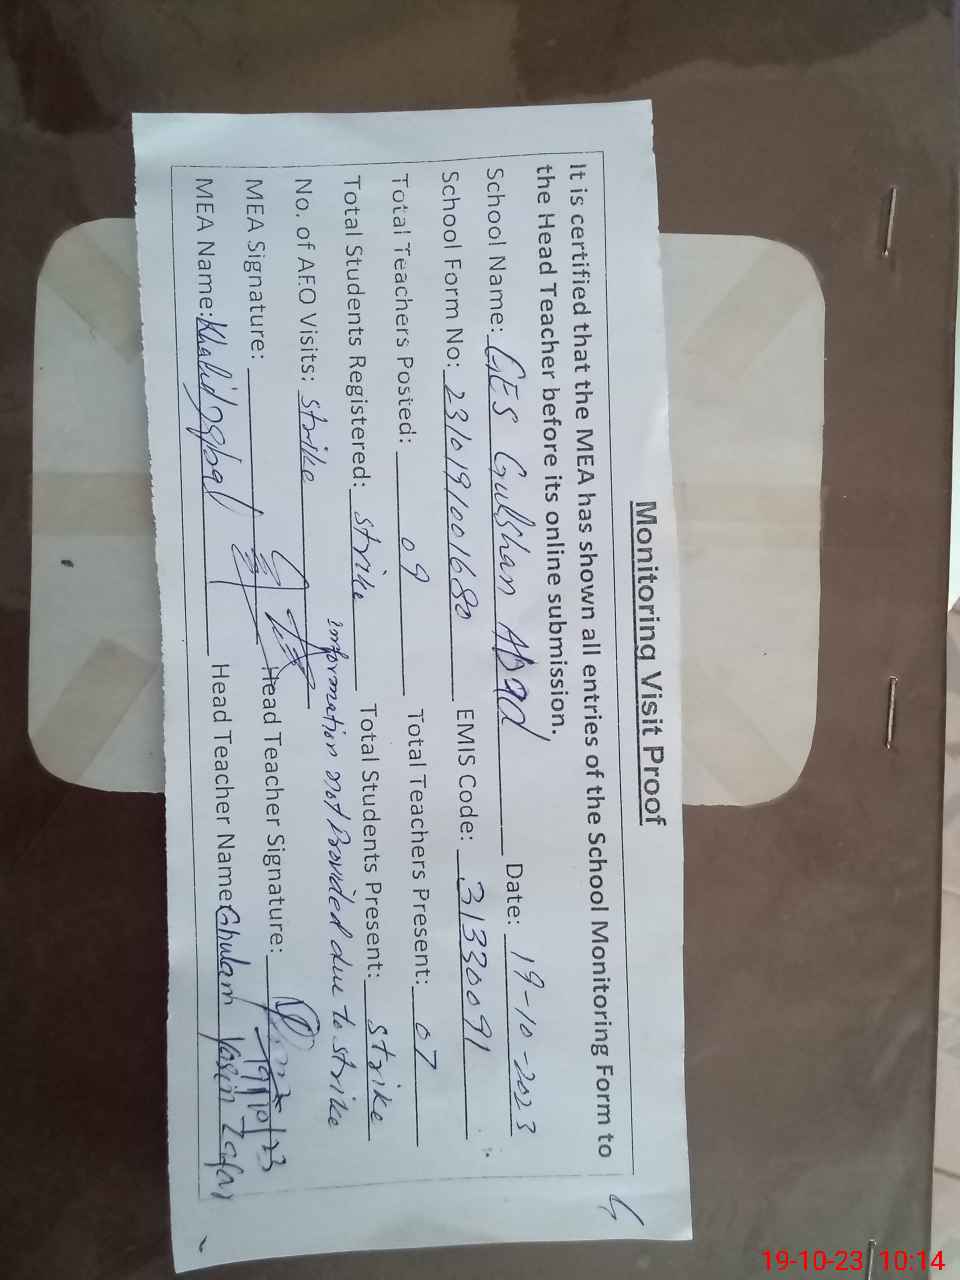 Monitoring Visit Proof
It is certified that the MEA has shown all entries of the School Monitoring Form to
the Head Teacher before its online submission.
School Name: GES Gulshan Abad Date: 19-10-2023
School Form No: 2310191001680 EMIS Code: 31330091
Total Teachers Posted: 09 Total Teachers Present: 07
Total Students Registered: strike Total Students Present: strike
information not Provided due to strike
No. of AEO Visits: strike
MEA Signature: Head Teacher Signature: 19/10/23
MEA Name: Khalid Iqbal Head Teacher Name: Ghulam Yasin Zafar
19-10-23 10:14